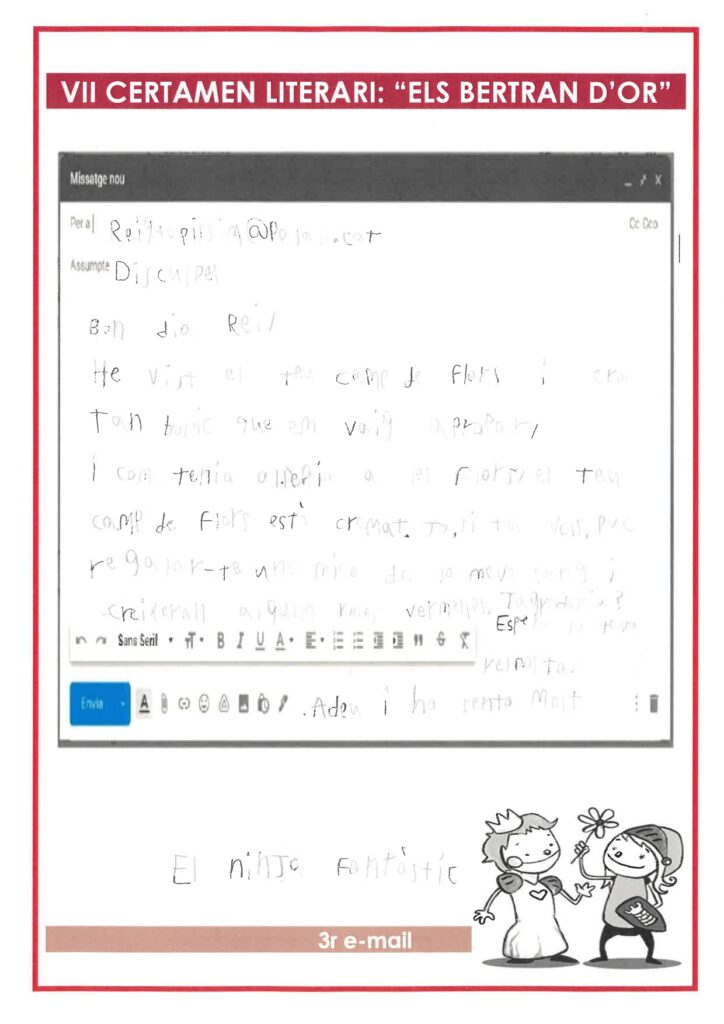 VII CERTAMEN LITERARI: “ELS BERTRAN D’OR”
Missatge nou
Per a
Cc Cco
Assumpte Disculpes
Bon dia Rei!
He vist el teu camp de flors i era
Tan bonic que em vaig apropar,
I com tenia al·lèrgia a les flors, el teu
camp de flors està cremat. Jo, si tu vols, puc
regalar-te una mica de la meva sang i
creixeran algunes roses vermelles. T'agradaria?
Espero la teva
Sans Serif
resposta.
Envia
.Adeu i ho sento molt
El ninja fantàstic
3r e-mail